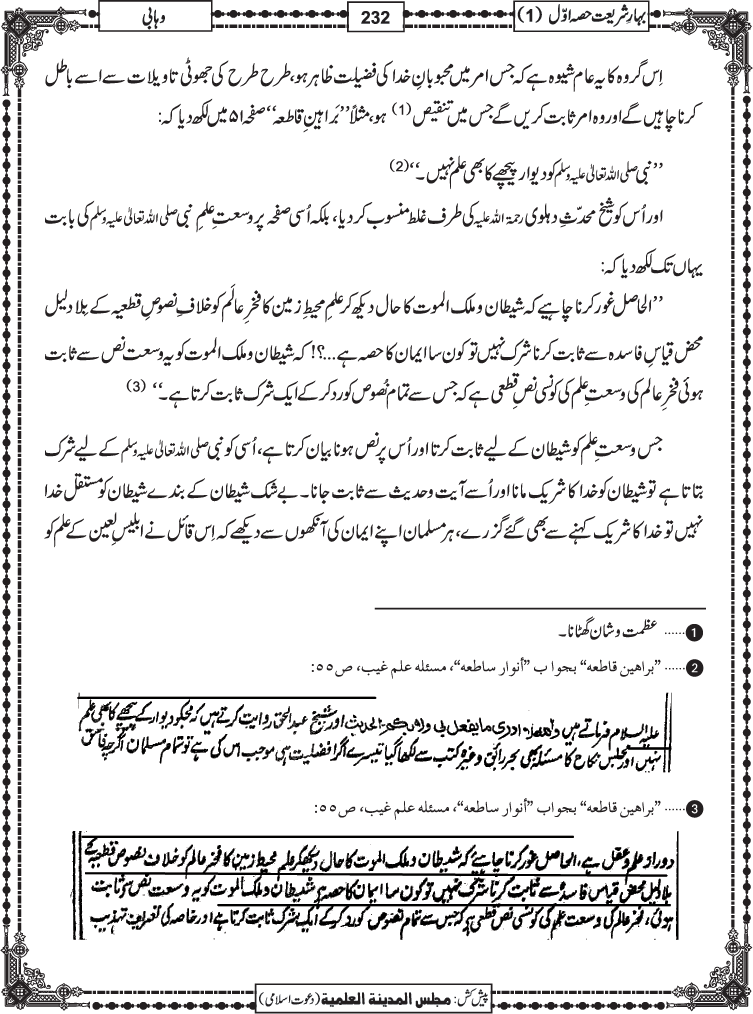 بہار شریعت حصہ اوّل (1)
232
وہابی
اِس گروہ کا یہ عام شیوہ ہے کہ جس امر میں محبوبانِ خدا کی فضیلت ظاہر ہو، طرح طرح کی جھوٹی تاویلات سے اسے باطل
کرنا چاہیں گے اور وہ امر ثابت کریں گے جس میں تنقیص (1) ہو، مثلاً ’’بَراہینِ قاطعہ‘‘ صفحہ ۵۱ میں لکھ دیا کہ:
’’نبی صلی اللہ تعالیٰ علیہ وسلم کو دیوار پیچھے کا بھی علم نہیں۔‘‘ (2)
اور اُس کو شیخ محدّثِ دہلوی رحمۃ اللہ علیہ کی طرف غلط منسوب کر دیا، بلکہ اُسی صفحہ پر وسعتِ علمِ نبی صلی اللہ تعالیٰ علیہ وسلم کی بابت
یہاں تک لکھ دیا کہ:
’’الحاصل غور کرنا چاہیے کہ شیطان و ملک الموت کا حال دیکھ کر علمِ محیطِ زمین کا فخرِ عالَم کو خلافِ نصوصِ قطعیہ کے بِلا دلیل
محض قیاسِ فاسدہ سے ثابت کرنا شرک نہیں تو کون سا ایمان کا حصہ ہے...؟! کہ شیطان و ملک الموت کو یہ وسعت نص سے ثابت
ہوئی فخرِ عالم کی وسعتِ علم کی کونسی نصِ قطعی ہے کہ جس سے تمام نُصوص کو رد کر کے ایک شرک ثابت کرتا ہے۔‘‘ (3)
جس وسعتِ علم کو شیطان کے لیے ثابت کرتا اور اُس پر نص ہونا بیان کرتا ہے، اُسی کو نبی صلی اللہ تعالیٰ علیہ وسلم کے لیے شرک
بتاتا ہے تو شیطان کو خدا کا شریک مانا اور اُسے آیت و حدیث سے ثابت جانا۔ بے شک شیطان کے بندے شیطان کو مستقل خدا
نہیں تو خدا کا شریک کہنے سے بھی گئے گزرے، ہر مسلمان اپنے ایمان کی آنکھوں سے دیکھے کہ اِس قائل نے ابلیسِ لعین کے علم کو
1 ...... عظمت و شان گھٹانا۔
2 ...... ”براهين قاطعه“ بجواب ”أنوار ساطعه“، مسئله علم غيب، ص٥٥:
علیہ السلام فرماتے ہیں واللہ لا ادری ما یفعل بی ولا بکم الحدیث اور شیخ عبد الحق روایت کرتے ہیں کہ مجھکو دیوار کے پیچھے کا بھی علم
نہیں اور مجلس نکاح کا مسئلہ بھی بحر رائق وغیرہ کتب سے لکھا گیا تیسرے اگر افضلیت ہی موجب اس کی ہے تو تمام مسلمان اگرچہ فاسق
3 ...... ”براهين قاطعه“ بجواب ”أنوار ساطعه“، مسئله علم غيب، ص٥٥:
دور از علم و عقل ہے، الحاصل غور کرنا چاہیئے کہ شیطان و ملک الموت کا حال دیکھکر علم محیط زمین کا فخر عالم کو خلاف نصوص قطعیہ کے
بلا دلیل محض قیاس فاسدہ سے ثابت کرنا شرک نہیں تو کون سا ایمان کا حصہ ہے شیطان و ملک الموت کو یہ وسعت نص سے ثابت
ہوئی، فخر عالم کی وسعت علم کی کونسی نص قطعی ہے کہ جس سے تمام نصوص کو رد کر کے ایک شرک ثابت کرتا ہے اور خاصہ کی تعریف تہذیب
پیش کش: مجلس المدینة العلمیة (دعوت اسلامی)